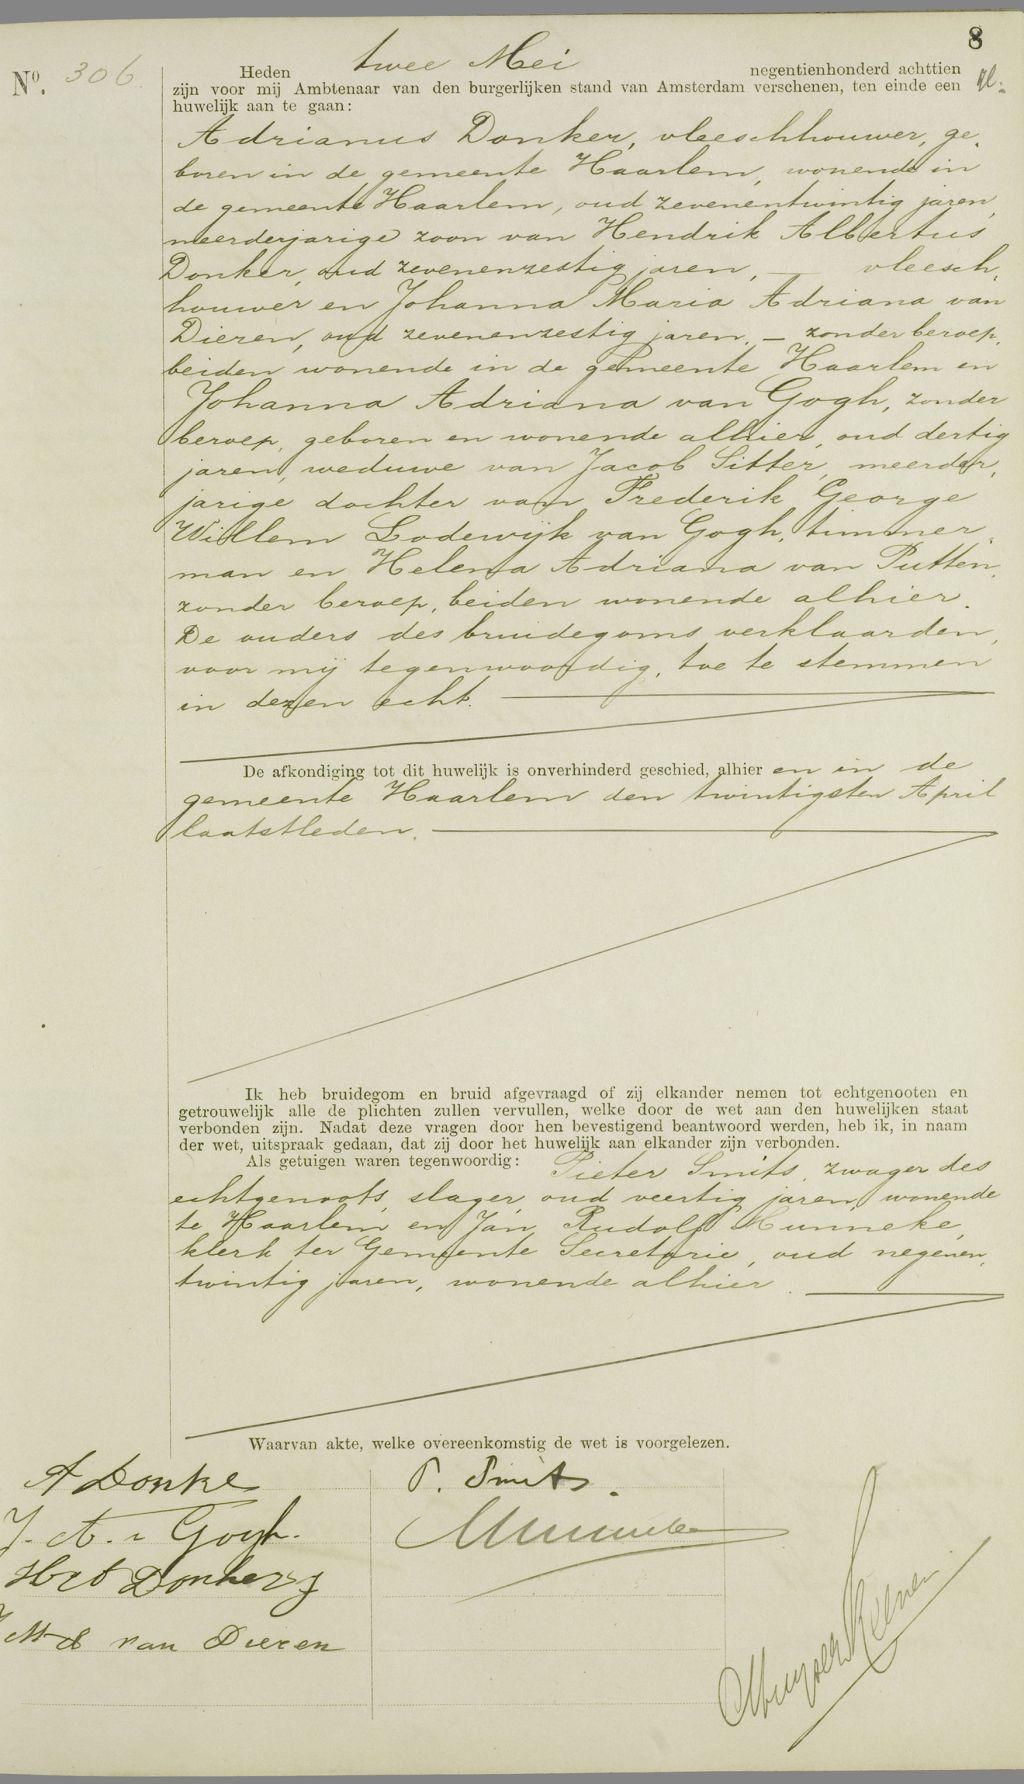 8
No. 306
Heden twee Mei negentienhonderd achttien
zijn voor mij Ambtenaar van den burgerlijken stand van Amsterdam verschenen, ten einde een
huwelijk aan te gaan:
Adrianus Donker, vleeschhouwer, ge-
boren in de gemeente Haarlem, wonende in
de gemeente Haarlem, oud zevenentwintig jaren,
meerderjarige zoon van Hendrik Albertus
Donker, oud zevenenzestig jaren, — vleesch-
houwer en Johanna Maria Adriana van
Dieren, oud zevenenzestig jaren, — zonder beroep,
beiden wonende in de gemeente Haarlem en
Johanna Adriana van Gogh, zonder
beroep, geboren en wonende alhier, oud dertig
jaren, weduwe van Jacob Sitter, meerder-
jarige dochter van Frederik George
Willem Lodewijk van Gogh, timmer-
man en Helena Adriana van Putten,
zonder beroep, beiden wonende alhier.
De ouders des bruidegoms verklaarden,
voor mij tegenwoordig, toe te stemmen
in dezen echt.
De afkondiging tot dit huwelijk is onverhinderd geschied, alhier en in de
gemeente Haarlem den twintigsten April
laatstleden.
Ik heb bruidegom en bruid afgevraagd of zij elkander nemen tot echtgenooten en
getrouwelijk alle de plichten zullen vervullen, welke door de wet aan den huwelijken staat
verbonden zijn. Nadat deze vragen door hen bevestigend beantwoord werden, heb ik, in naam
der wet, uitspraak gedaan, dat zij door het huwelijk aan elkander zijn verbonden.
Als getuigen waren tegenwoordig: Pieter Smits, zwager des
echtgenoots, slager, oud veertig jaren, wonende
te Haarlem en Jan Rudolf Munneke,
klerk ter Gemeente Secretarie, oud negenen-
twintig jaren, wonende alhier.
Waarvan akte, welke overeenkomstig de wet is voorgelezen.
A Donke
P. Smits.
J. A. v Gogh.
Donker
van Dieren